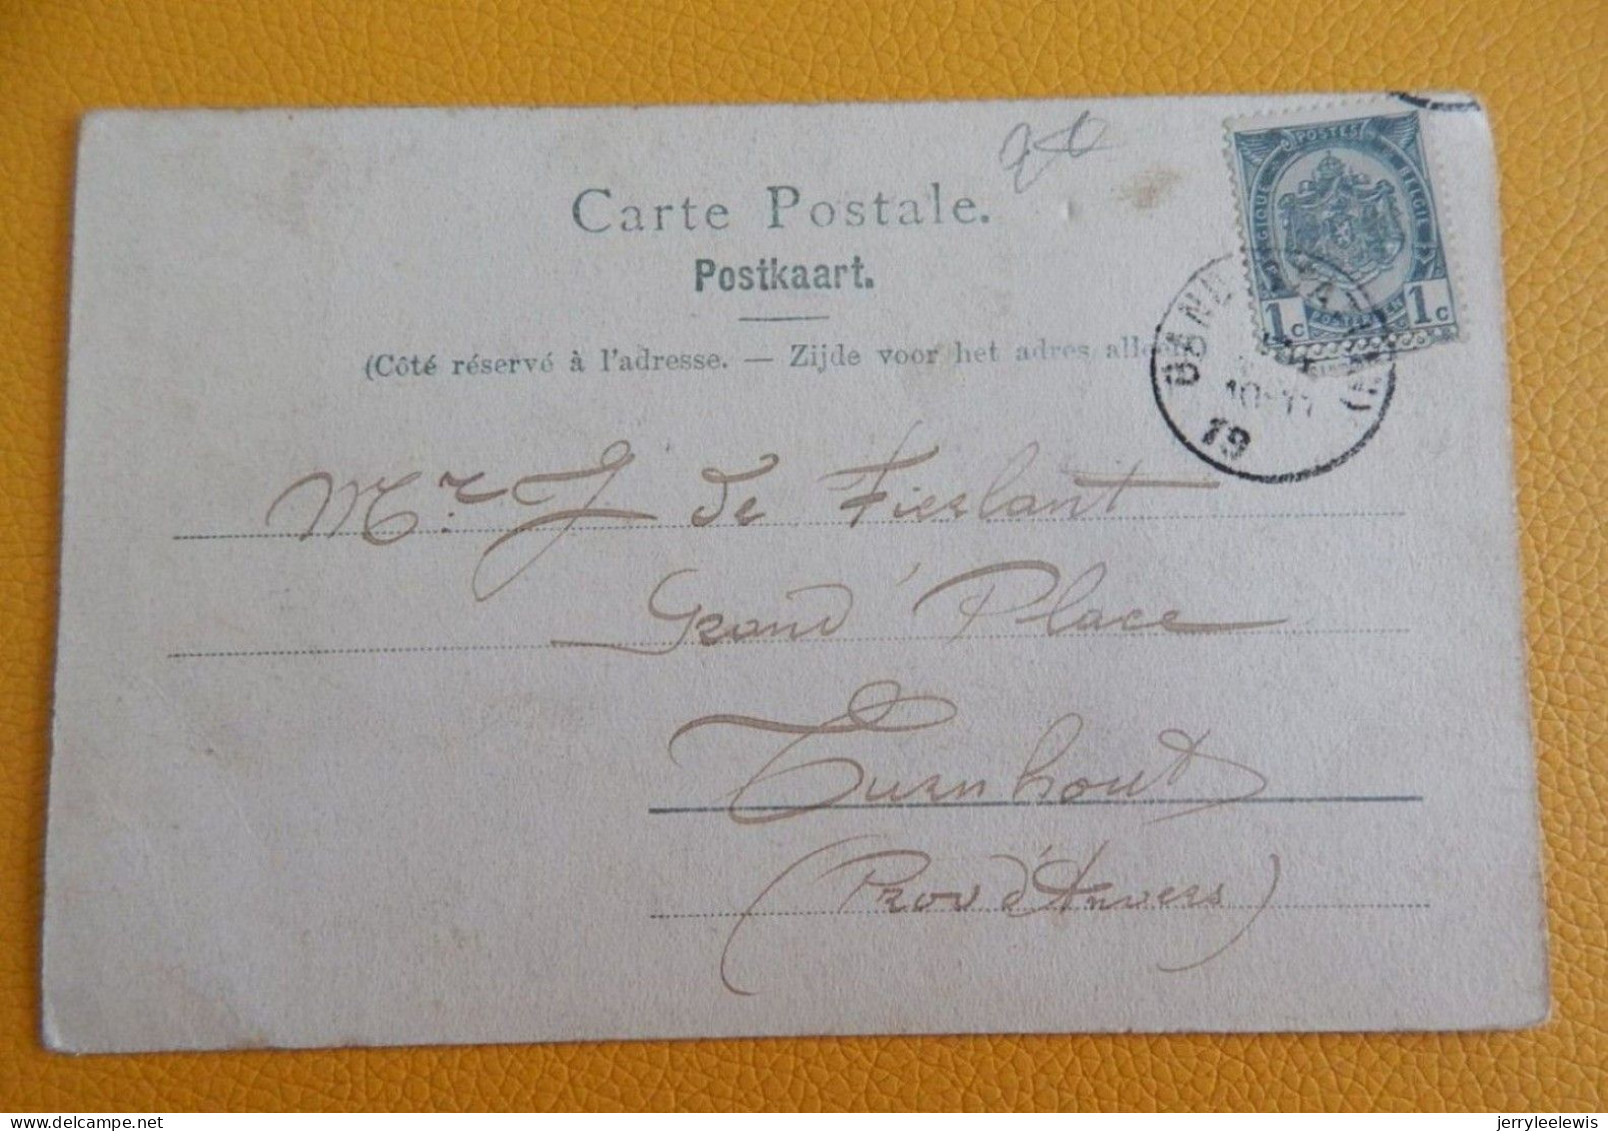 Carte Postale.
Postkaart.
(Côté réservé à l'adresse. — Zijde voor het adres alleen)
POSTES
BELGIE
1c 1c
10-11
19
Mr J de Fierlant
Grand' Place
Turnhout
(Prov d'Anvers)
delcampe.net
jerryleelewis